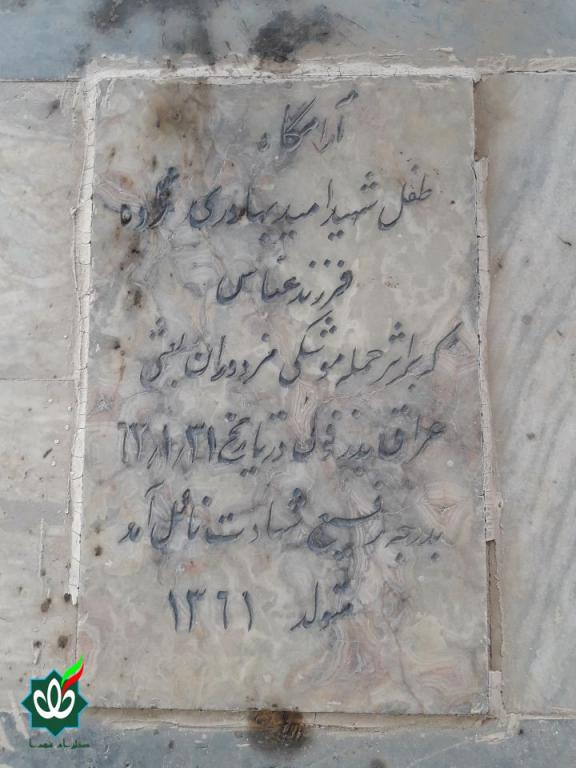 آرامگاه
طفل شهید امید بهادری
فرزند عباس
که براثر حمله موشکی مزدوران بعثی
عراق بدزفول درتاریخ ۶۲/۱/۳۱
بدرجه رفیع شهادت نائل آمد
متولد ۱۳۶۱